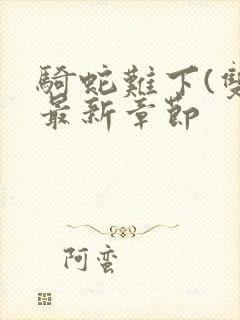 騎蛇難下(雙
最新章節
阿蠻